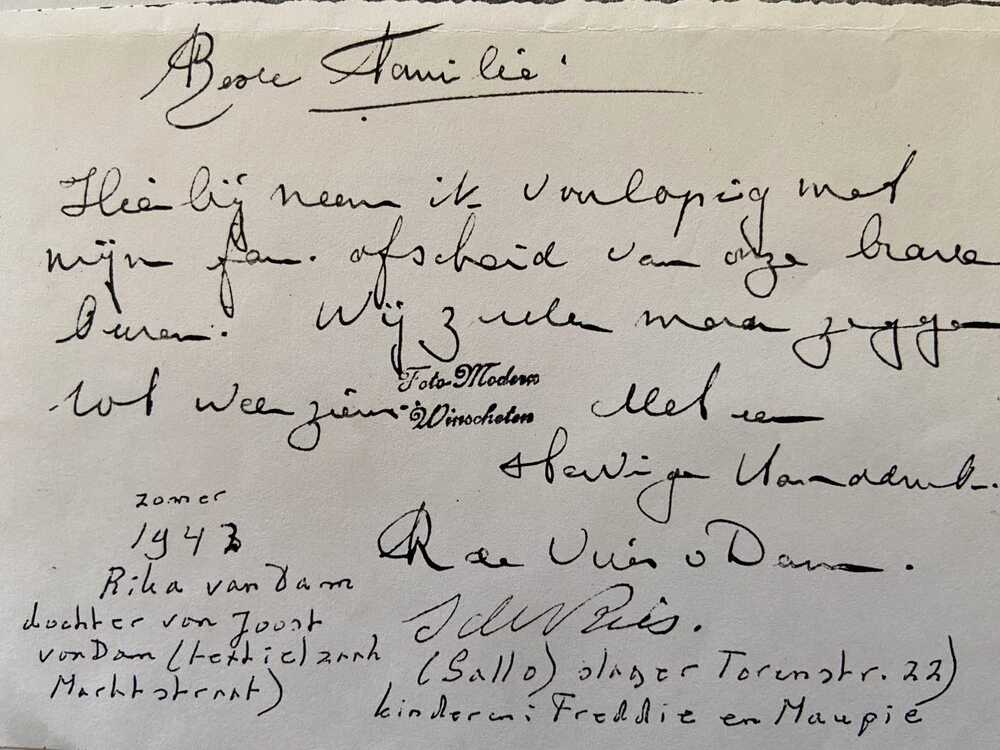 Beste Familie.
Hierbij neem ik voorlopig met
mijn fam. afscheid van onze brave
buren. Wij zullen maar zeggen
tot weerziens. Met een
Foto Modern
Winschoten
stevige handdruk.
R de Vries v Dam.
S de Vries.
(Sallo) slager Torenstr. 22)
kinderen: Freddie en Maupie
zomer
1943
Rika van Dam
dochter van Joost
van Dam (textielzaak
Marktstraat)